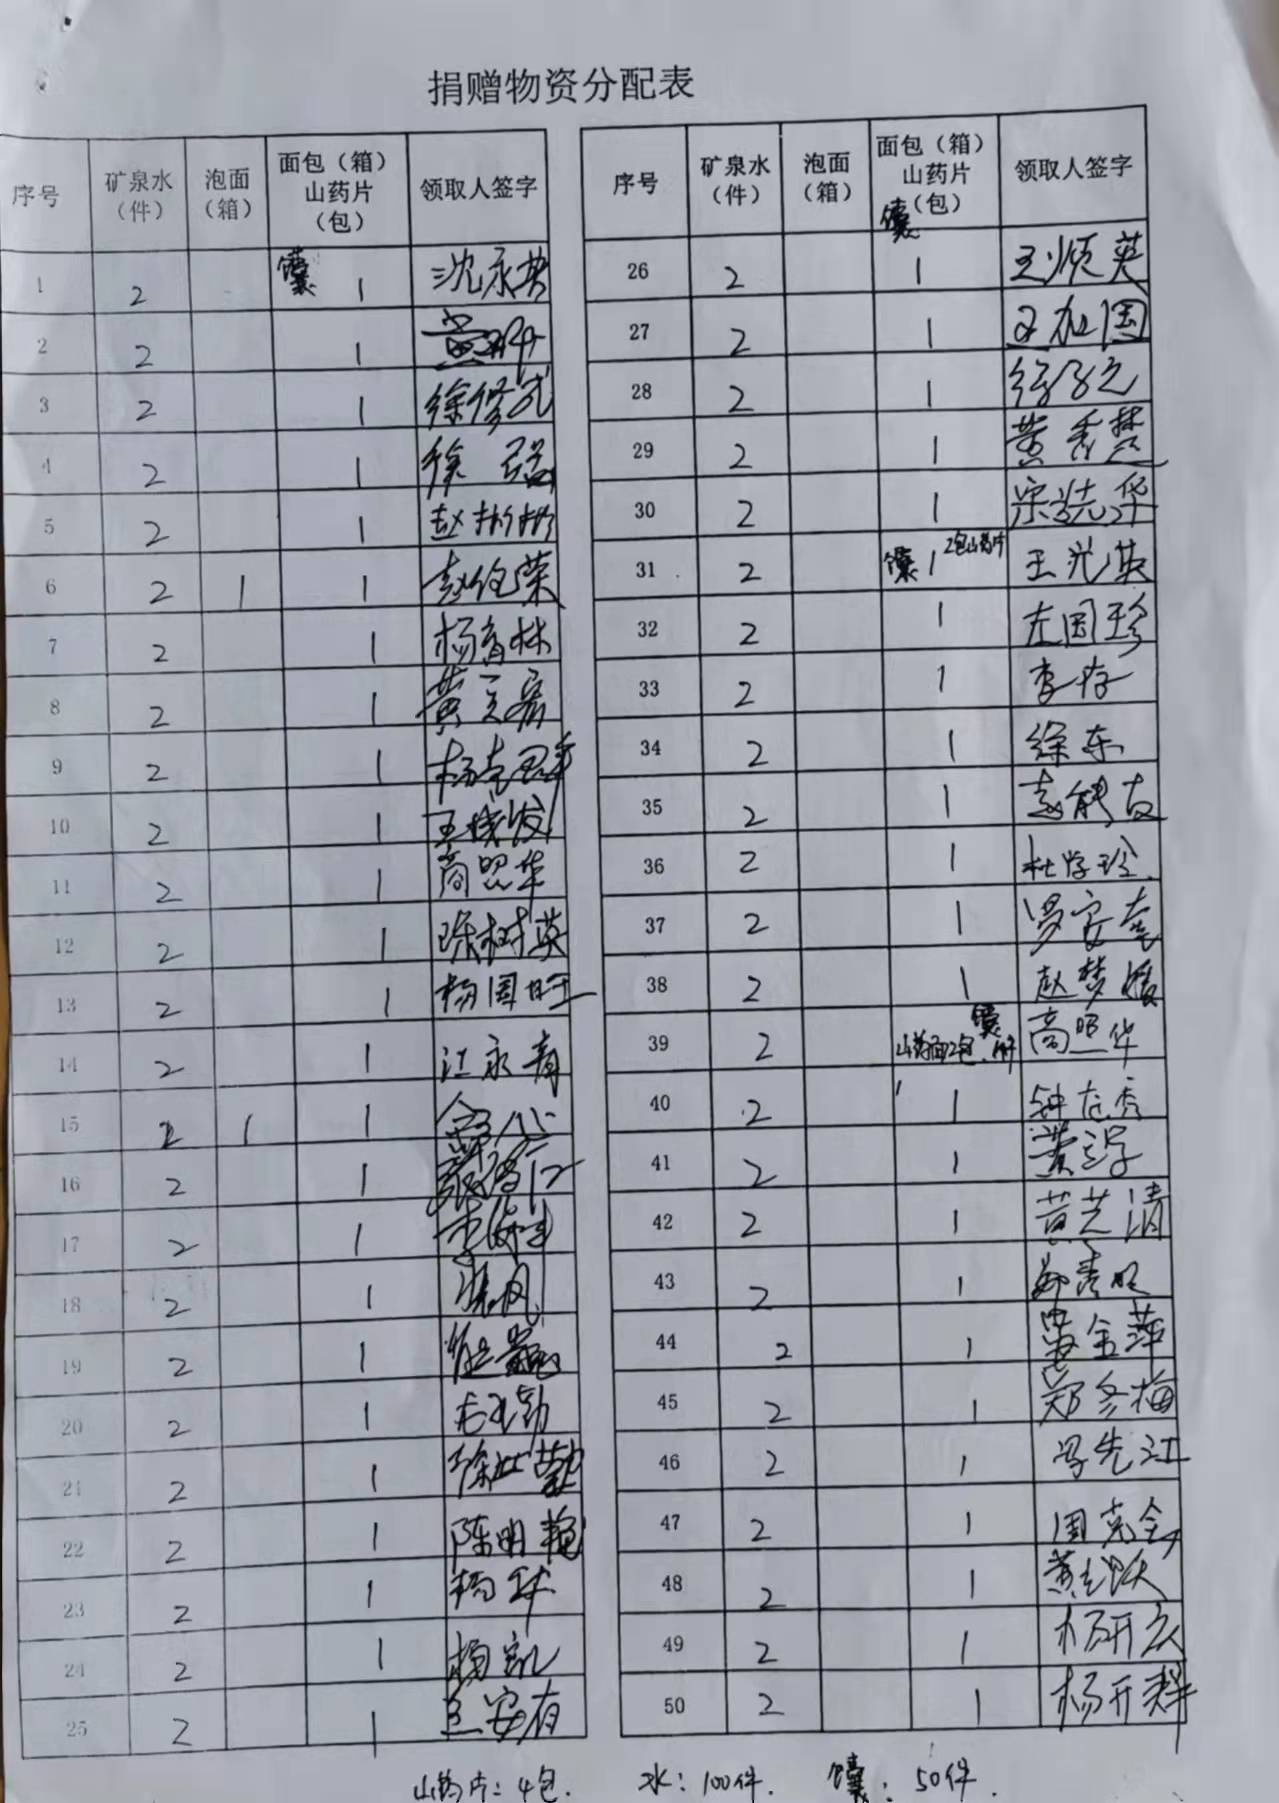 捐赠物资分配表
序号 矿泉水（件） 泡面（箱） 面包（箱）山药片（包） 领取人签字
1 2 馕 1 沈永英
2 2 1
3 2 1 徐修武
4 2 1 徐
5 2 1 赵彬彬
6 2 1 1 赵体荣
7 2 1 杨育林
8 2 1 黄立宏
9 2 1
10 2 1
11 2 1 高照华
12 2 1 陈树英
13 2 1 杨国旺
14 2 1 江永青
15 2 1 1
16 2 1
17 2 1
18 2 1
19 2 1
20 2 1
21 2 1
22 2 1 陈明艳
23 2 1 杨
24 2 1 杨凯
25 2 1
序号 矿泉水（件） 泡面（箱） 面包（箱）山药片（包） 领取人签字
馕
26 2 1 王顺英
27 2 1 王加国
28 2 1
29 2 1 黄秀楚
30 2 1 宋选华
31 2 馕 1 2包山药片 王光英
32 2 1 左国珍
33 2 1 李存
34 2 1 徐东
35 2 1 赵能友
36 2 1 杜学珍
37 2 1 罗安奎
38 2 1 赵梦媛
39 2 馕 山药面2包.1件 高照华
40 2 1 钟左秀
41 2 1 黄立学
42 2 1 黄芝清
43 2 1 郑春明
44 2 1 雷金萍
45 2 1 郑冬梅
46 2 1 冯先江
47 2 1 周克全
48 2 1 黄
49 2 1 杨开云
50 2 1 杨开群
山药片：4包. 水：100件. 馕：50件.